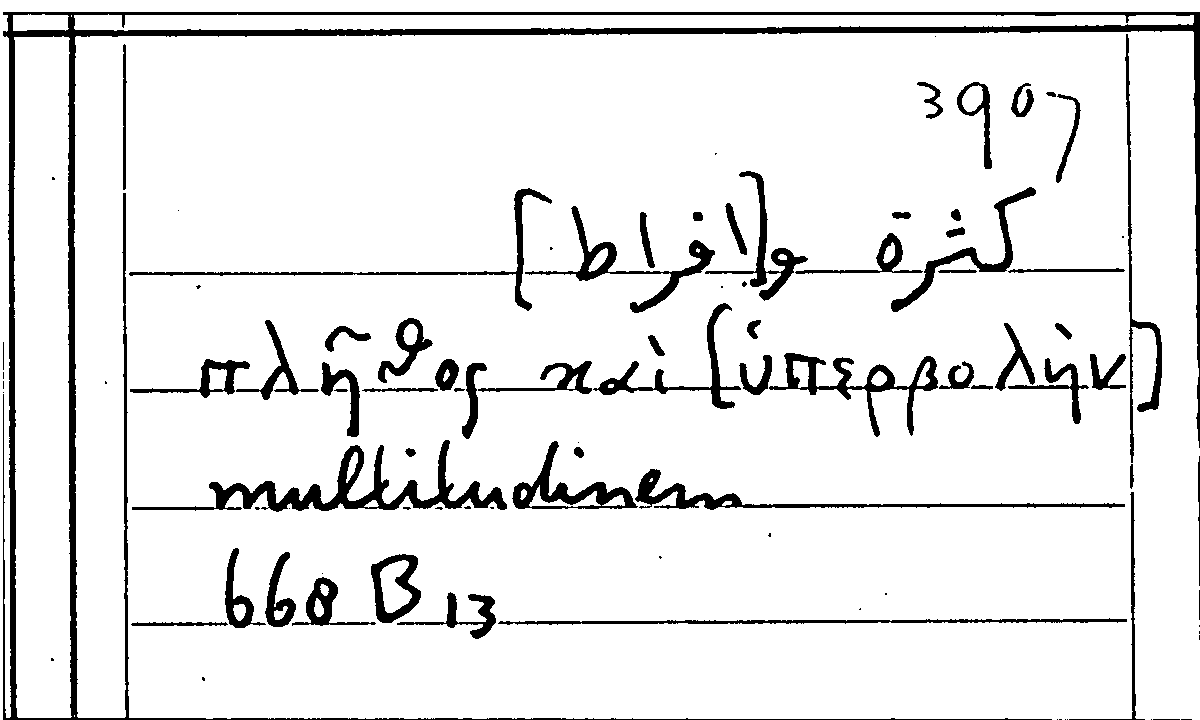 3907
كثرة و[افراط]
πλῆθος καὶ [ὑπερβολὴν]
multitudinem
668 B 13